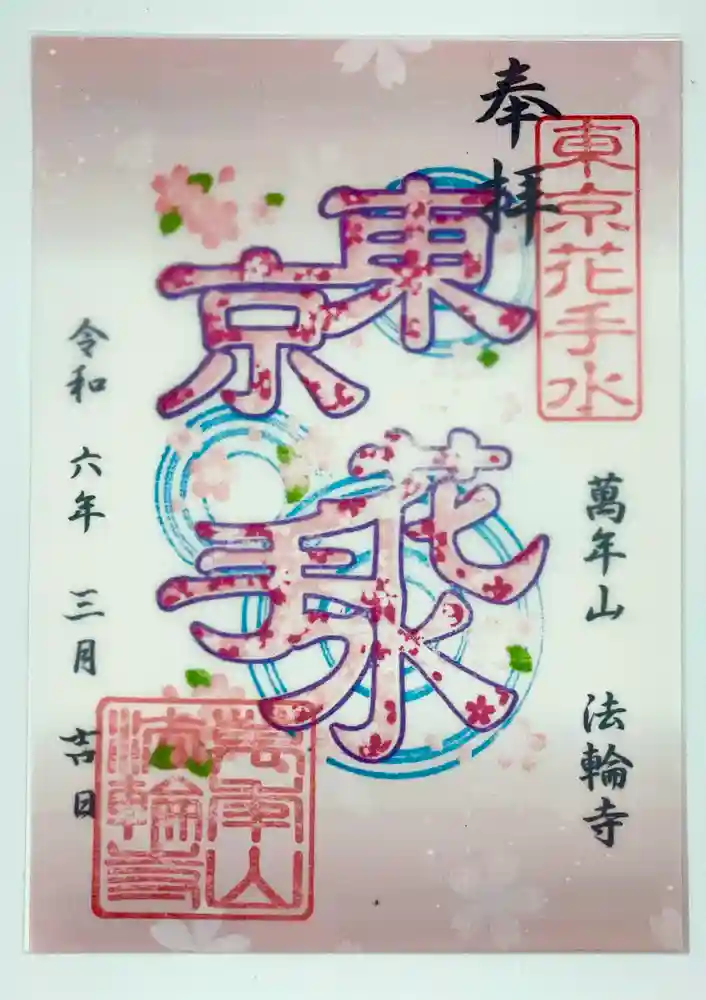 奉拝
東京花手水
萬年山 法輪寺
東京
花手水
令和 六年 三月 吉日
萬年山
法輪寺